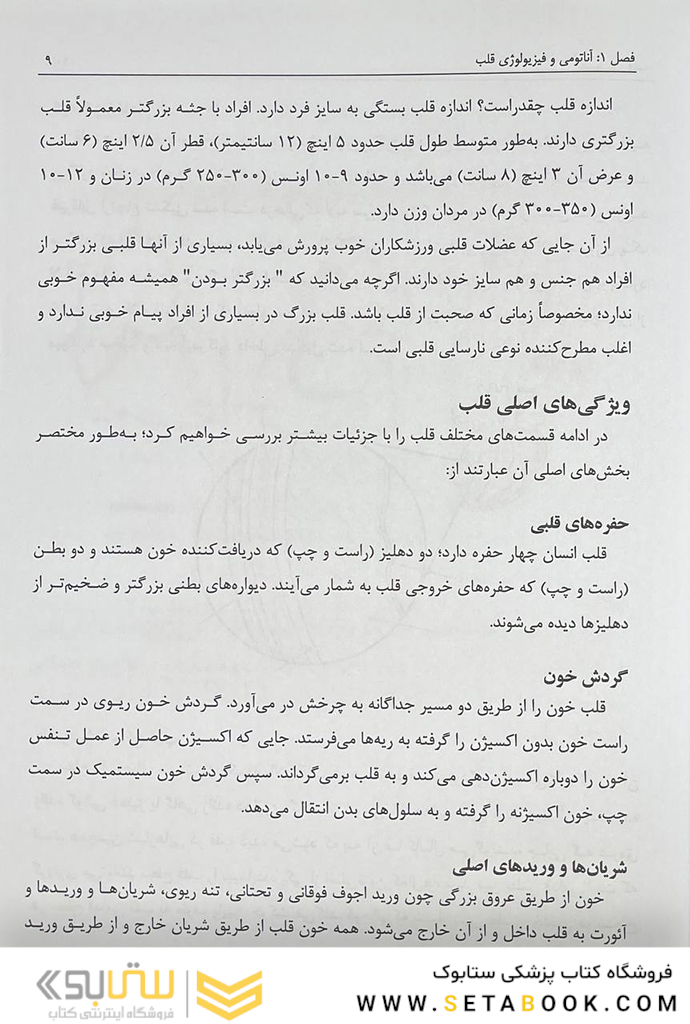 فصل ۱: آناتومی و فیزیولوژی قلب ۹
اندازه قلب چقدراست؟ اندازه قلب بستگی به سایز فرد دارد. افراد با جثه بزرگتر معمولاً قلب
بزرگتری دارند. به‌طور متوسط طول قلب حدود ۵ اینچ (۱۲ سانتیمتر)، قطر آن ۲/۵ اینچ (۶ سانت)
و عرض آن ۳ اینچ (۸ سانت) می‌باشد و حدود ۹-۱۰ اونس (۳۰۰-۲۵۰ گرم) در زنان و ۱۲-۱۰
اونس (۳۵۰-۳۰۰ گرم) در مردان وزن دارد.
از آن جایی که عضلات قلبی ورزشکاران خوب پرورش می‌یابد، بسیاری از آنها قلبی بزرگتر از
افراد هم جنس و هم سایز خود دارند. اگرچه می‌دانید که " بزرگتر بودن" همیشه مفهوم خوبی
ندارد؛ مخصوصاً زمانی که صحبت از قلب باشد. قلب بزرگ در بسیاری از افراد پیام خوبی ندارد و
اغلب مطرح‌کننده نوعی نارسایی قلبی است.
ویژگی‌های اصلی قلب
در ادامه قسمت‌های مختلف قلب را با جزئیات بیشتر بررسی خواهیم کرد؛ به‌طور مختصر
بخش‌های اصلی آن عبارتند از:
حفره‌های قلبی
قلب انسان چهار حفره دارد؛ دو دهلیز (راست و چپ) که دریافت‌کننده خون هستند و دو بطن
(راست و چپ) که حفره‌های خروجی قلب به شمار می‌آیند. دیواره‌های بطنی بزرگتر و ضخیم‌تر از
دهلیزها دیده می‌شوند.
گردش خون
قلب خون را از طریق دو مسیر جداگانه به چرخش در می‌آورد. گردش خون ریوی در سمت
راست خون بدون اکسیژن را گرفته به ریه‌ها می‌فرستد. جایی که اکسیژن حاصل از عمل تنفس
خون را دوباره اکسیژن‌دهی می‌کند و به قلب برمی‌گرداند. سپس گردش خون سیستمیک در سمت
چپ، خون اکسیژنه را گرفته و به سلول‌های بدن انتقال می‌دهد.
شریان‌ها و وریدهای اصلی
خون از طریق عروق بزرگی چون ورید اجوف فوقانی و تحتانی، تنه ریوی، شریان‌ها و وریدها و
آئورت به قلب داخل و از آن خارج می‌شود. همه خون قلب از طریق شریان خارج و از طریق ورید
فروشگاه کتاب پزشکی ستابوک
WWW.SETABOOK.COM
ستابوک
فروشگاه اینترنتی کتاب